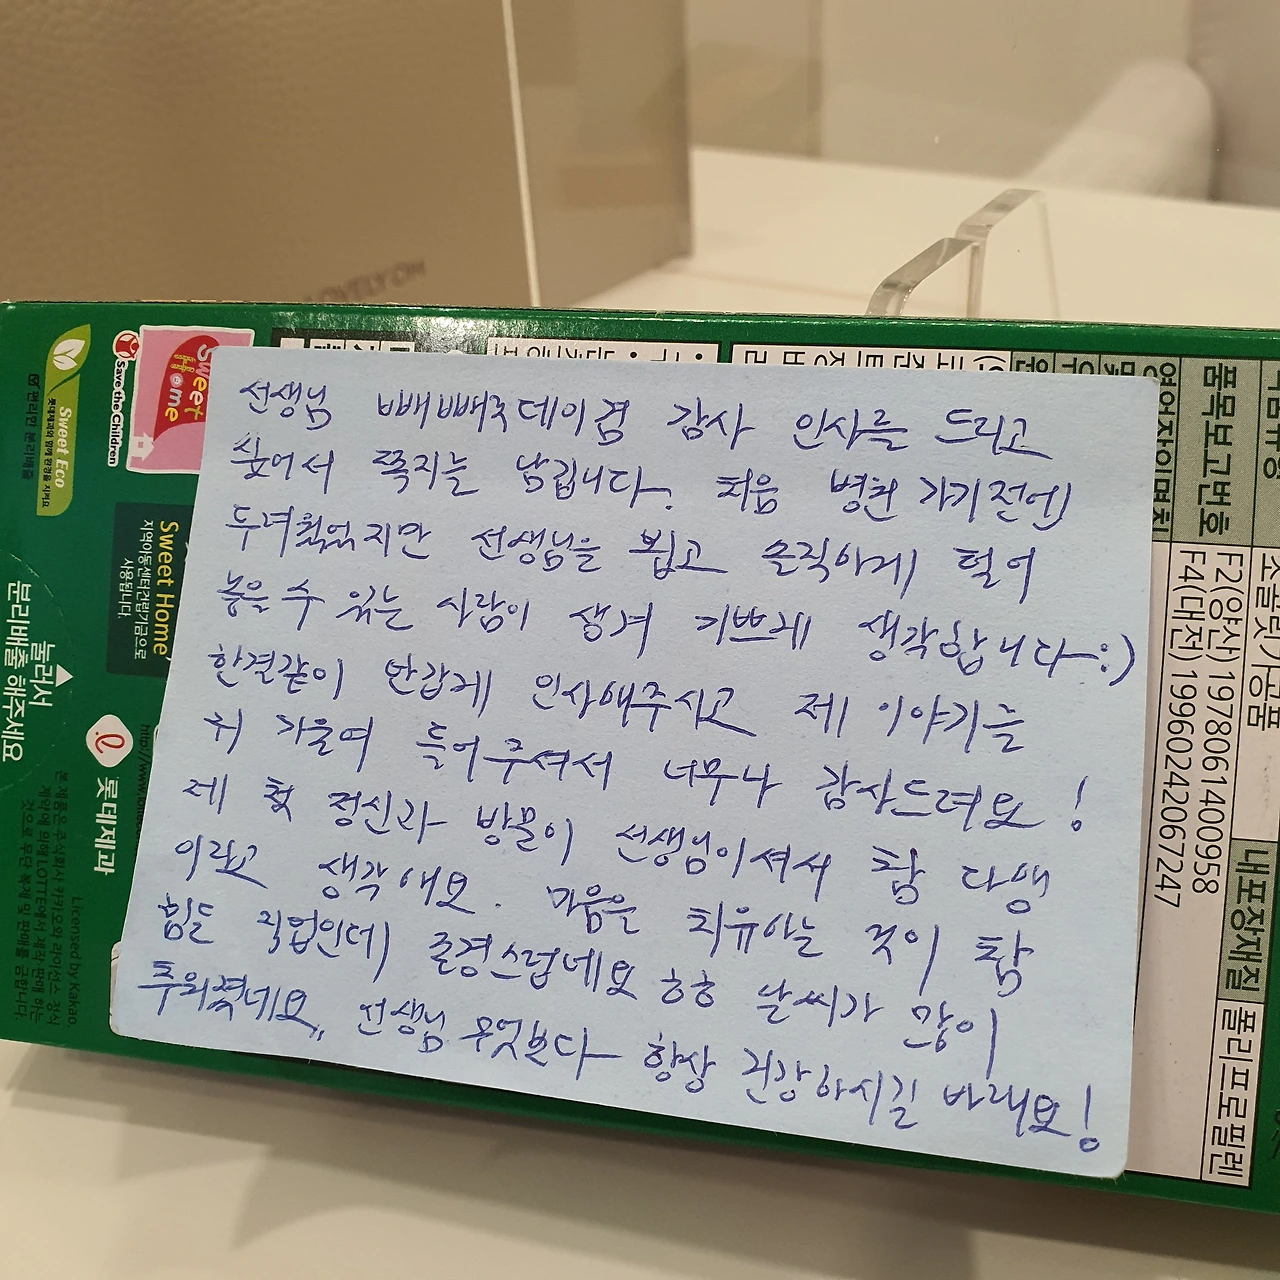 LOVELY OH
선생님 빼빼로데이겸 감사 인사를 드리고
싶어서 쪽지를 남깁니다. 처음 병원 가기전에
두려웠었지만 선생님을 뵙고 솔직하게 털어
놓을 수 있는 사람이 생겨 기쁘게 생각합니다 :)
한결같이 반갑게 인사해주시고 제 이야기를
귀 기울여 들어주셔서 너무나 감사드려요!
제 첫 정신과 방문이 선생님이셔서 참 다행
이라고 생각해요. 마음을 치유하는 것이 참
힘든 직업인데 존경스럽네요 ㅎㅎ 날씨가 많이
추워졌네요,, 선생님 무엇보다 항상 건강하시길 바래요!
Sweet Eco
롯데제과와 함께 환경을 지켜요
편리한 분리배출
Save the Children
Sweet Home
Sweet Home,
지역아동센터건립기금으로
사용됩니다.
눌러서
분리배출 해주세요
롯데제과
Licensed by Kakao.
품목보고번호
F2(양산) 1978061400958
F4(대전) 19960242067247
내포장재질
폴리프로필렌